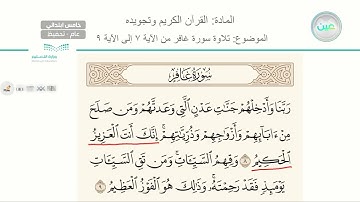 المادة: القرآن الكريم وتجويده
الموضوع: تلاوة سورة غافر من الآية ٧ إلى الآية ٩
خامس ابتدائي
عام - تحفيظ
عين
وزارة التعليم
سُورَةُ غَافِرٍ
رَبَّنَا وَأَدْخِلْهُمْ جَنَّٰتِ عَدْنٍ ٱلَّتِي وَعَدتَّهُمْ وَمَن صَلَحَ
مِنْ ءَابَآئِهِمْ وَأَزْوَٰجِهِمْ وَذُرِّيَّٰتِهِمْ إِنَّكَ أَنتَ ٱلْعَزِيزُ
ٱلْحَكِيمُ ٨ وَقِهِمُ ٱلسَّيِّـَٔاتِ وَمَن تَقِ ٱلسَّيِّـَٔاتِ
يَوْمَئِذٍ فَقَدْ رَحِمْتَهُۥ وَذَٰلِكَ هُوَ ٱلْفَوْزُ ٱلْعَظِيمُ ٩